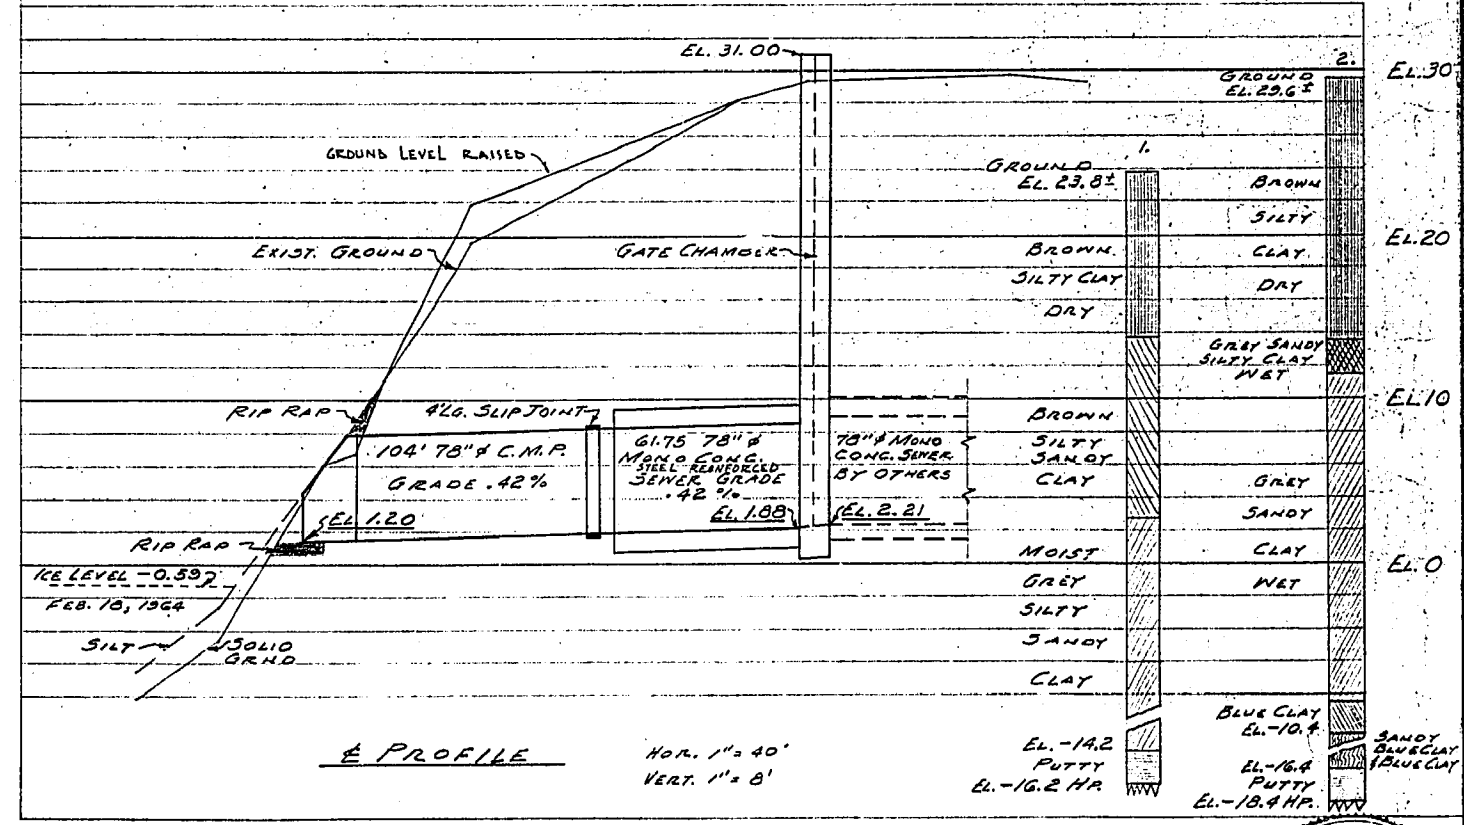 EL. 31.00
GROUND LEVEL RAISED
EXIST. GROUND
GATE CHAMBER
RIP RAP
4' LG. SLIP JOINT
104' 78" ⌀ C.M.P.
GRADE .42%
61.75 78" ⌀
MONO CONC.
STEEL REINFORCED
SEWER GRADE
.42 %
78" ⌀ MONO
CONC. SEWER
BY OTHERS
EL. 1.20
EL. 1.88
EL. 2.21
RIP RAP
ICE LEVEL -0.59
FEB. 18, 1964
SILT
SOLID
GRND
℄ PROFILE
HOR. 1" = 40'
VERT. 1" = 8'
1.
GROUND
EL. 23.8±
BROWN
SILTY CLAY
DRY
BROWN
SILTY
SANDY
CLAY
MOIST
GREY
SILTY
SANDY
CLAY
EL. -14.2
PUTTY
EL. -16.2 HP.
2.
GROUND
EL. 29.6±
BROWN
SILTY
CLAY
DRY
GREY SANDY
SILTY CLAY
WET
GREY
SANDY
CLAY
WET
BLUE CLAY
EL. -10.4
SANDY
BLUE CLAY
& BLUE CLAY
EL. -16.4
PUTTY
EL. -18.4 HP.
EL. 30
EL. 20
EL. 10
EL. 0